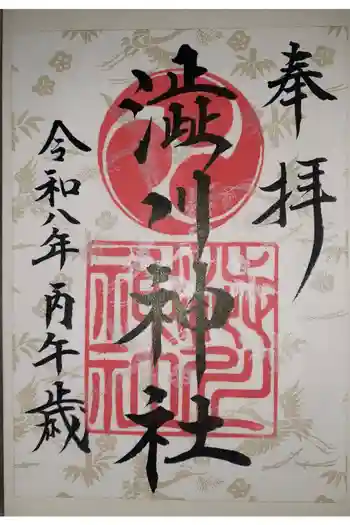 奉拝
澁川神社
令和八年丙午歳